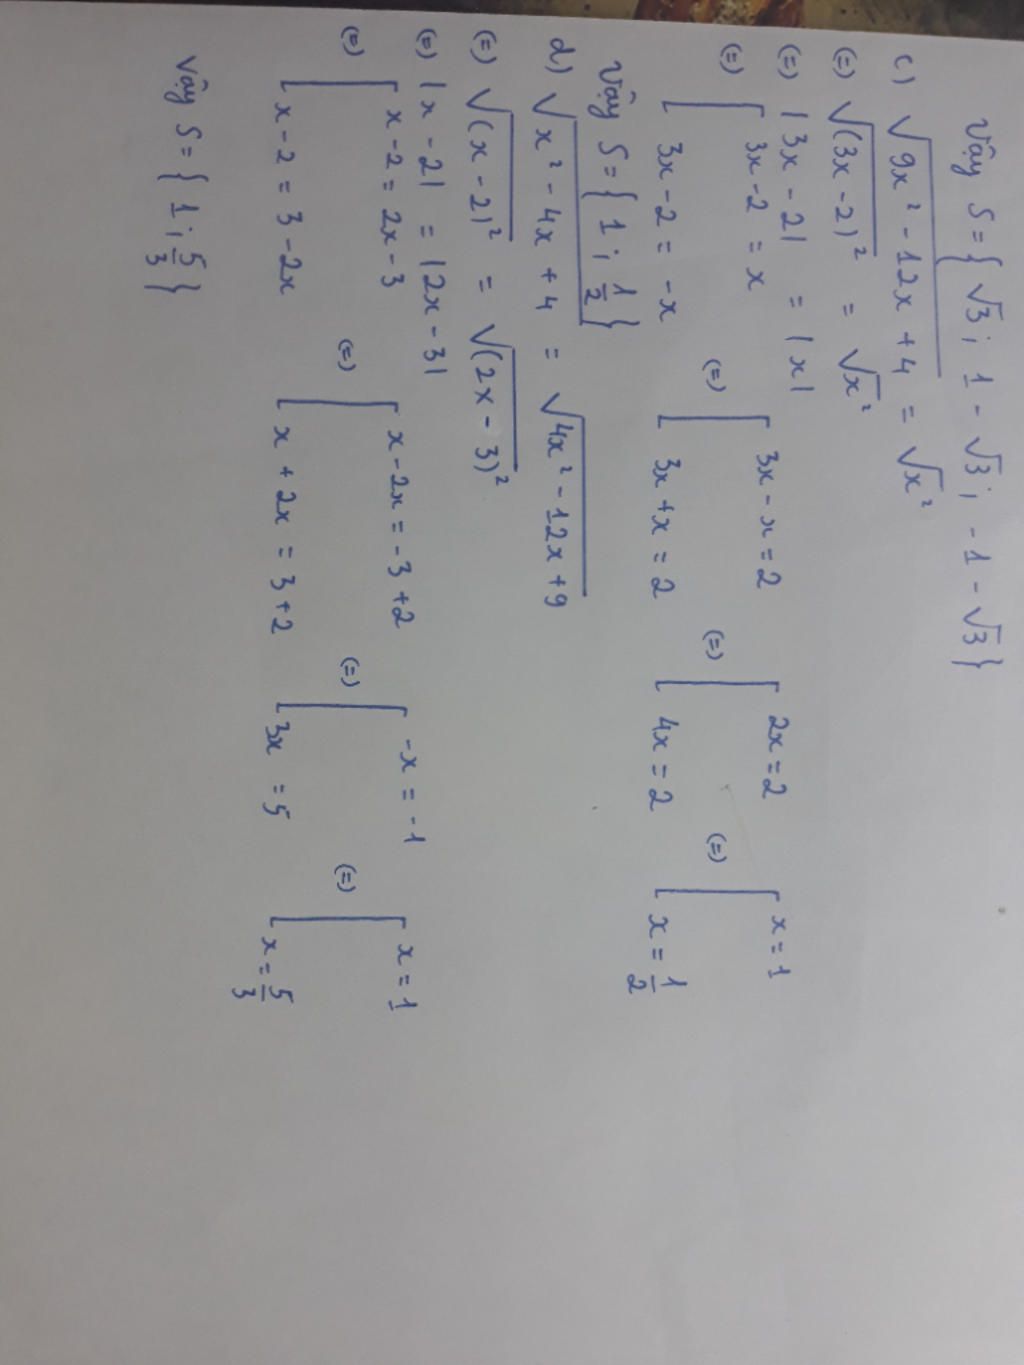 Vậy S = { √3 ; 1 - √3 ; -1 - √3 }
c) √(9x² - 12x + 4) = √x²
(=) √(3x - 2)² = √x²
(=) |3x - 2| = |x|
(=) [ 3x - 2 = x (=) [ 3x - x = 2 (=) [ 2x = 2 (=) [ x = 1
3x - 2 = -x 3x + x = 2 4x = 2 x = 1/2
Vậy S = { 1 ; 1/2 }
d) √(x² - 4x + 4) = √(4x² - 12x + 9)
(=) √(x - 2)² = √(2x - 3)²
(=) |x - 2| = |2x - 3|
(=) [ x - 2 = 2x - 3 (=) [ x - 2x = -3 + 2 (=) [ -x = -1 (=) [ x = 1
x - 2 = 3 - 2x x + 2x = 3 + 2 3x = 5 x = 5/3
Vậy S = { 1 ; 5/3 }